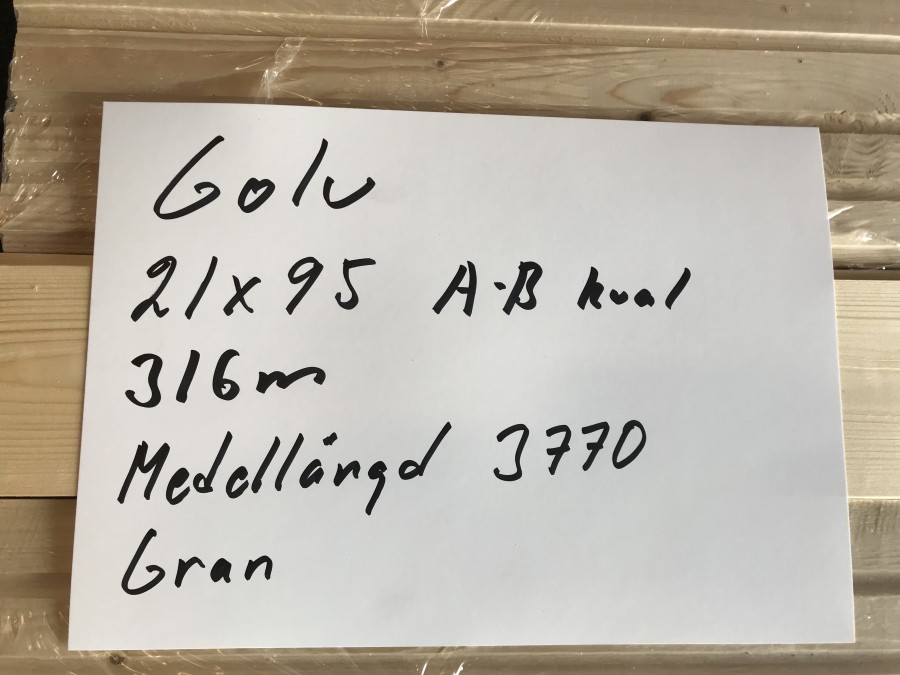 Golv
21x95 A-B kval
316m
Medellängd 3770
Gran